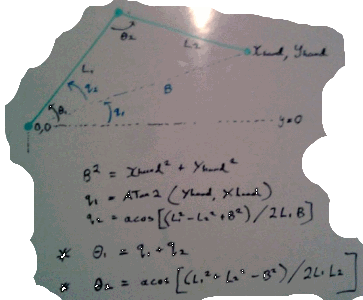 θ2
L2
Xhand, Yhand
L1
q2
B
θ1
q1
0,0
y=0
B² = Xhand² + Yhand²
q1 = ATan2 (Yhand, Xhand)
q2 = acos[(L1² - L2² + B²) / 2L1B]
* θ1 = q1 + q2
* θ2 = acos[(L1² + L2² - B²) / 2L1L2]